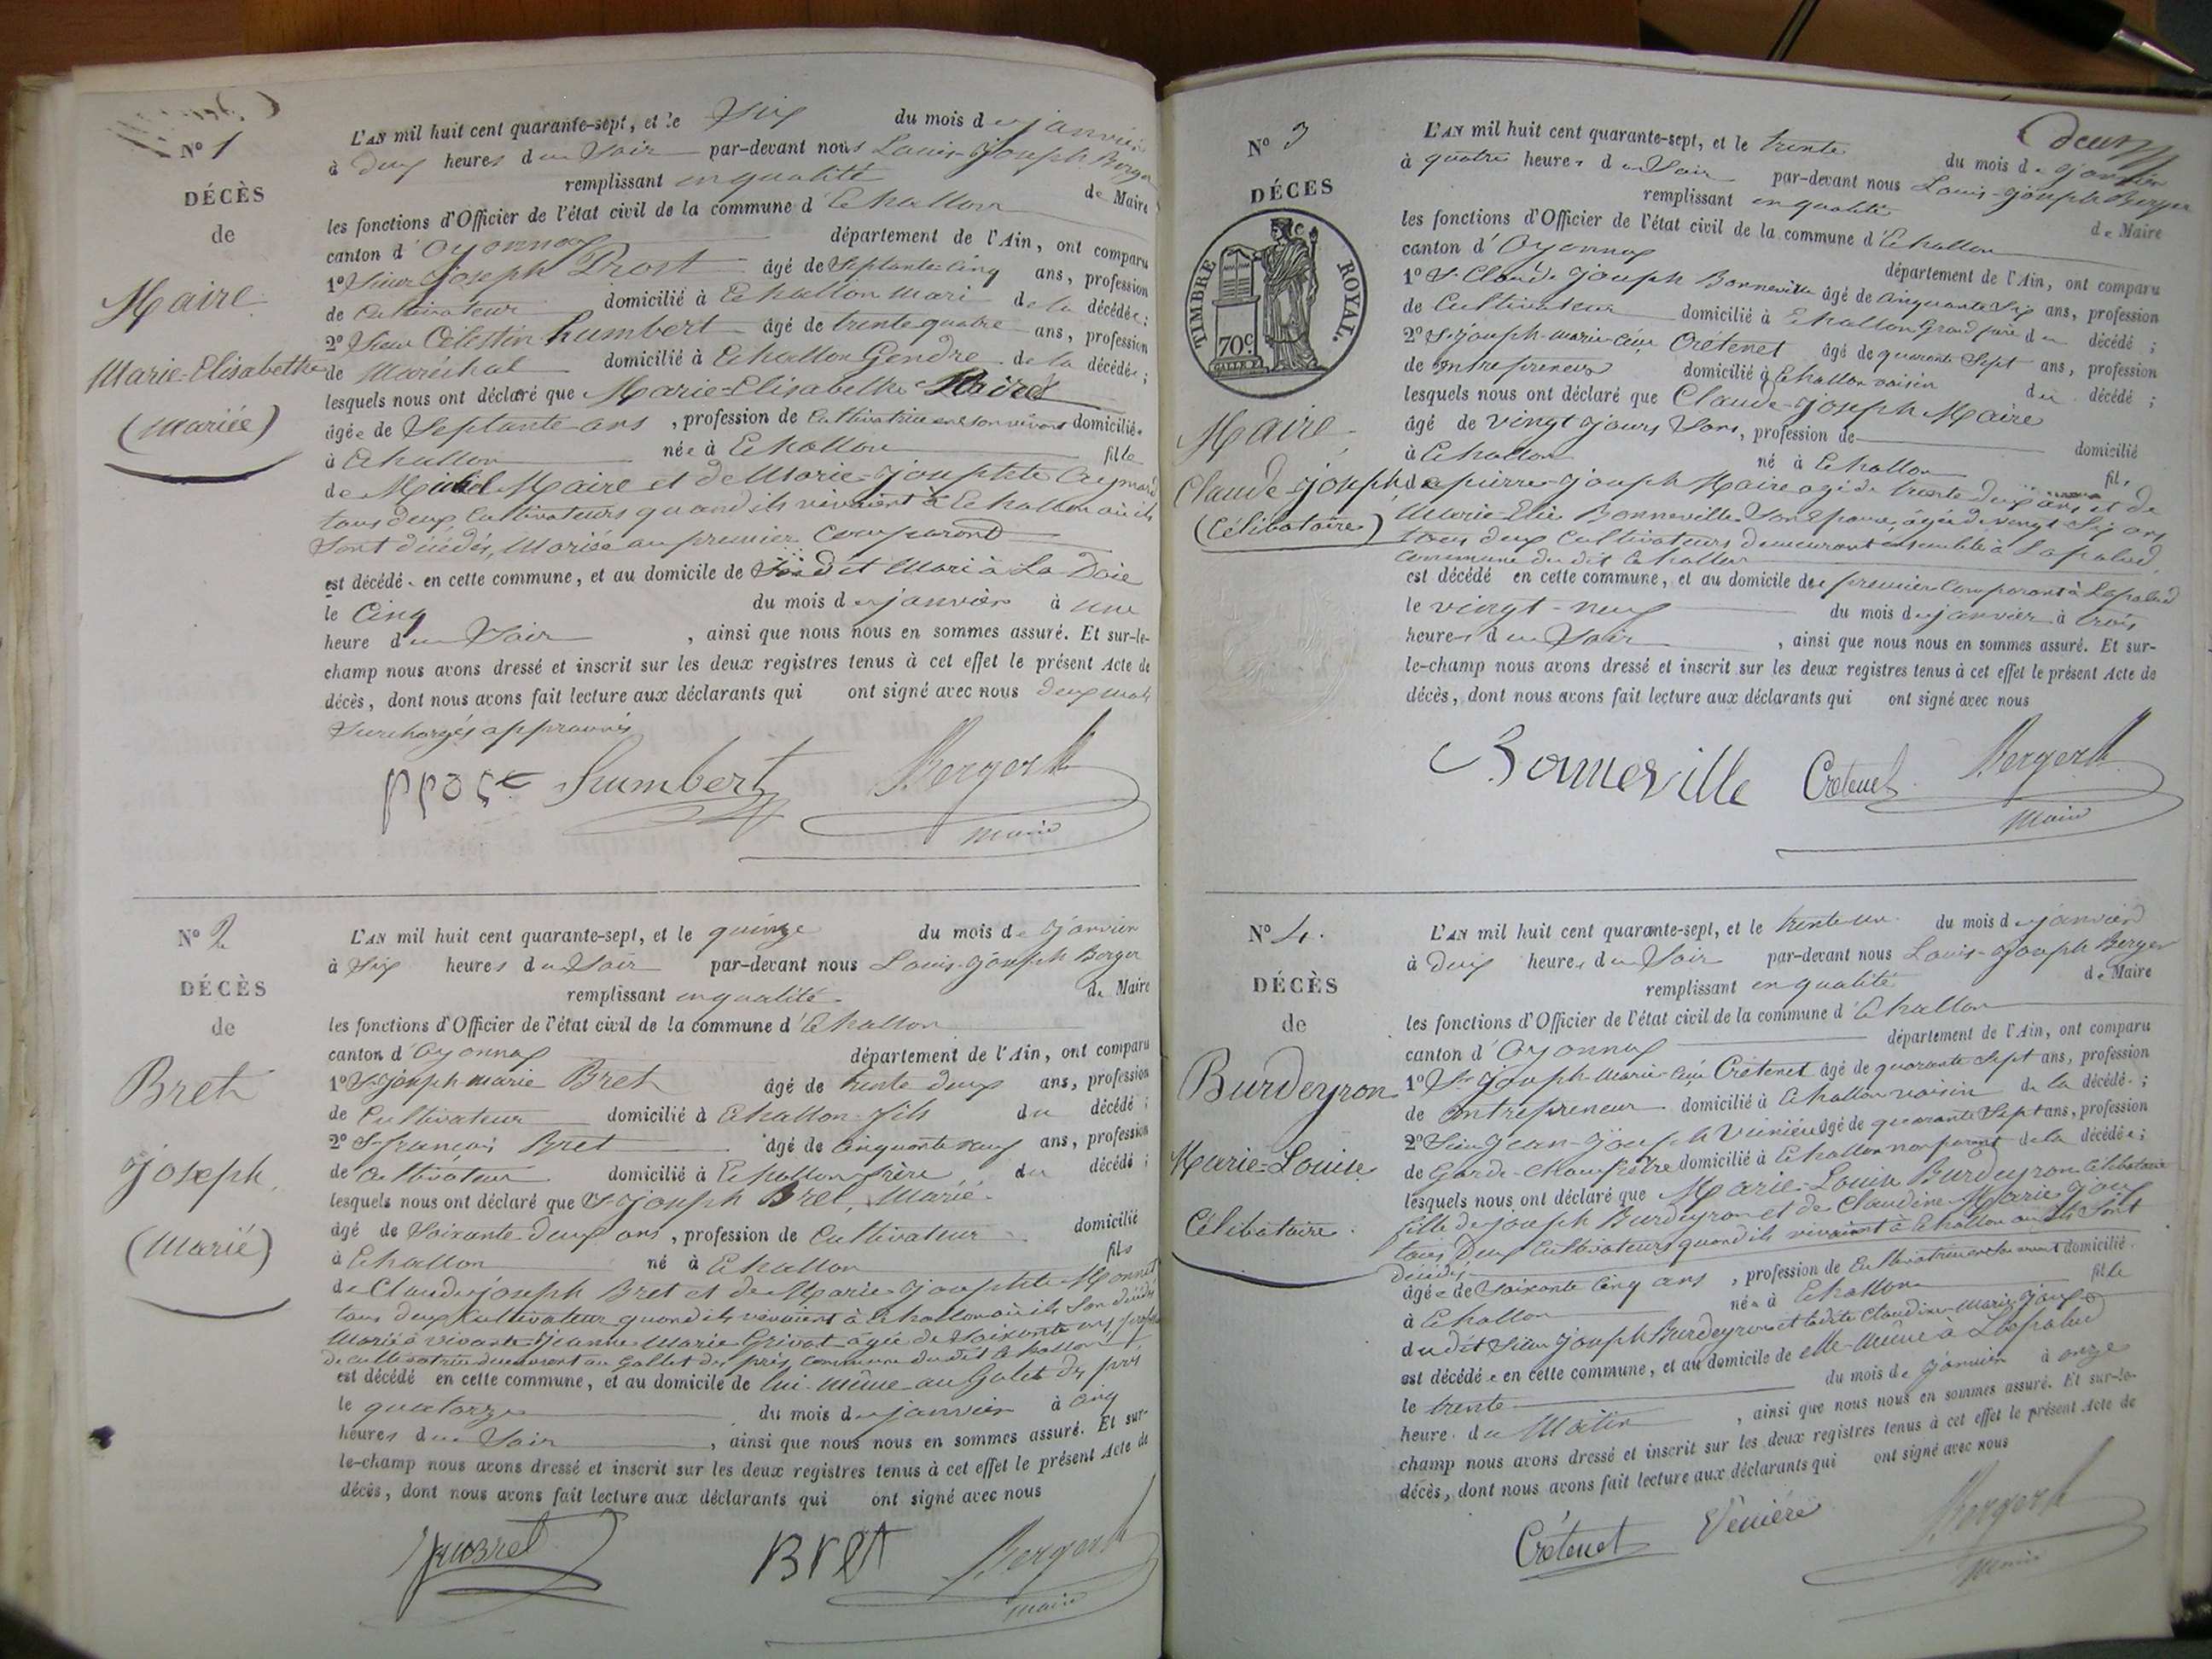 N° 1
DÉCÈS
de
Maire
Marie-Elisabethe
(Mariée)
L'AN mil huit cent quarante-sept, et le Six du mois de janvier
à deux heures du Soir par-devant nous Louis-Joseph Berger
remplissant en qualité de Maire
les fonctions d'Officier de l'état civil de la commune d'Echallon
canton d'Oyonnax département de l'Ain, ont comparu
1° Sieur Joseph Prost âgé de Septante-Cinq ans, profession
de Cultivateur domicilié à Echallon Mari de la décédée ;
2° Sieur Célestin humbert âgé de trente quatre ans, profession
de Maréchal domicilié à Echallon Gendre de la décédée ;
lesquels nous ont déclaré que Marie-Elisabethe Maire
âgée de Septante ans , profession de Cultivatrice en son vivant domiciliée
à Echallon née à Echallon fille
de Michel Maire et de Marie-Josephte Aymard
tous deux Cultivateurs quand ils vivaient à Echallon où ils
Sont décédés, Mariée au premier Comparant
est décédée en cette commune, et au domicile de Son dit Mari à La Doie
le Cinq du mois de janvier à une
heure du Soir , ainsi que nous nous en sommes assuré. Et sur-le-
champ nous avons dressé et inscrit sur les deux registres tenus à cet effet le présent Acte de
décès, dont nous avons fait lecture aux déclarants qui ont signé avec nous deux mots
Surchargés approuvés
prost humbert Berger
Maire
N° 2
DÉCÈS
de
Bret
Joseph
(Marié)
L'AN mil huit cent quarante-sept, et le quinze du mois de janvier
à Six heures du Soir par-devant nous Louis-Joseph Berger
remplissant en qualité de Maire
les fonctions d'Officier de l'état civil de la commune d'Echallon
canton d'Oyonnax département de l'Ain, ont comparu
1° Sr Joseph marie Bret âgé de trente deux ans, profession
de Cultivateur domicilié à Echallon fils du décédé ;
2° Sr françois Bret âgé de Cinquante neuf ans, profession
de Cultivateur domicilié à Echallon frère du décédé ;
lesquels nous ont déclaré que Sr Joseph Bret, Marié
âgé de Soixante deux ans , profession de Cultivateur domicilié
à Echallon né à Echallon fils
de Claude-joseph Bret et de Marie Josephte Monnet
tous deux Cultivateur quand ils vivaient à Echallon où ils Son décédés
Marié à vivante Jeanne Marie Grivat âgée de Soixante ans profession
de cultivatrice demeurant au Gallet des prés, commune du dit Echallon
est décédé en cette commune, et au domicile de lui-même au Galet des prés
le quatorze du mois de janvier à cinq
heures du Soir , ainsi que nous nous en sommes assuré. Et sur-
le-champ nous avons dressé et inscrit sur les deux registres tenus à cet effet le présent Acte de
décès, dont nous avons fait lecture aux déclarants qui ont signé avec nous
Bret Berger
Maire
deux
N° 3
DÉCES
TIMBRE ROYAL.
70c
Maire
Claude-Joseph
(Célibataire)
L'AN mil huit cent quarante-sept, et le trente du mois de janvier
à quatre heures du Soir par-devant nous Louis-Joseph Berger
remplissant en qualité de Maire
les fonctions d'Officier de l'état civil de la commune d'Echallon
canton d'Oyonnax département de l'Ain, ont comparu
1° Sr Claude Joseph Bonneville âgé de cinquante Six ans, profession
de Cultivateur domicilié à Echallon Grand père du décédé ;
2° Sr Joseph-marie Crétenet âgé de quarante Sept ans, profession
de Entrepreneur domicilié à Echallon voisin du décédé ;
lesquels nous ont déclaré que Claude-Joseph Maire
âgé de vingt jours Sans , profession de domicilié
à Echallon né à Echallon fils
de pierre-Joseph Maire agé de trente deux ans et de
Marie-Elie Bonneville Son Epouse, âgée de vingt Six ans,
tous deux Cultivateurs demeurant ensemble à Lapalud,
commune du dit Echallon
est décédé en cette commune, et au domicile de premier Comparant à Lapalud
le vingt-neuf du mois de janvier à trois
heures du Soir , ainsi que nous nous en sommes assuré. Et sur-
le-champ nous avons dressé et inscrit sur les deux registres tenus à cet effet le présent Acte de
décès, dont nous avons fait lecture aux déclarants qui ont signé avec nous
Bonneville Crétenet Berger
Maire
N° 4.
DÉCÈS
de
Burdeyron
Marie-Louise
Célibataire
L'AN mil huit cent quarante-sept, et le trente-un du mois de janvier
à deux heures du Soir par-devant nous Louis-Joseph Berger
remplissant en qualité de Maire
les fonctions d'Officier de l'état civil de la commune d'Echallon
canton d'Oyonnax département de l'Ain, ont comparu
1° Sr Joseph-Marie Crétenet âgé de quarante Sept ans, profession
de Entrepreneur domicilié à Echallon voisin de la décédée ;
2° Sieur Jean-Joseph Vunière âgé de quarante Sept ans, profession
de Garde-Champêtre domicilié à Echallon non parent de la décédée ;
lesquels nous ont déclaré que Marie-Louise Burdeyron Célibataire
fille de joseph Burdeyron et de Claudine-Marie
tous Deux Cultivateurs quand ils vivaient à Echallon où ils Sont
décédés
âgée de Soixante Cinq ans , profession de Cultivatrice en son vivant domicilié
à Echallon née à Echallon fille
du dit Sieur Joseph Burdeyron et ladite Claudine-Marie
est décédée en cette commune, et au domicile de elle-même à Lapalud
le trente du mois de janvier à onze
heure du Matin , ainsi que nous nous en sommes assuré. Et sur-le-
champ nous avons dressé et inscrit sur les deux registres tenus à cet effet le présent Acte de
décès, dont nous avons fait lecture aux déclarants qui ont signé avec nous
Crétenet Vunière Berger
Maire